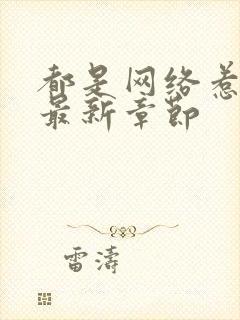 都是网络惹
最新章节
雷濤